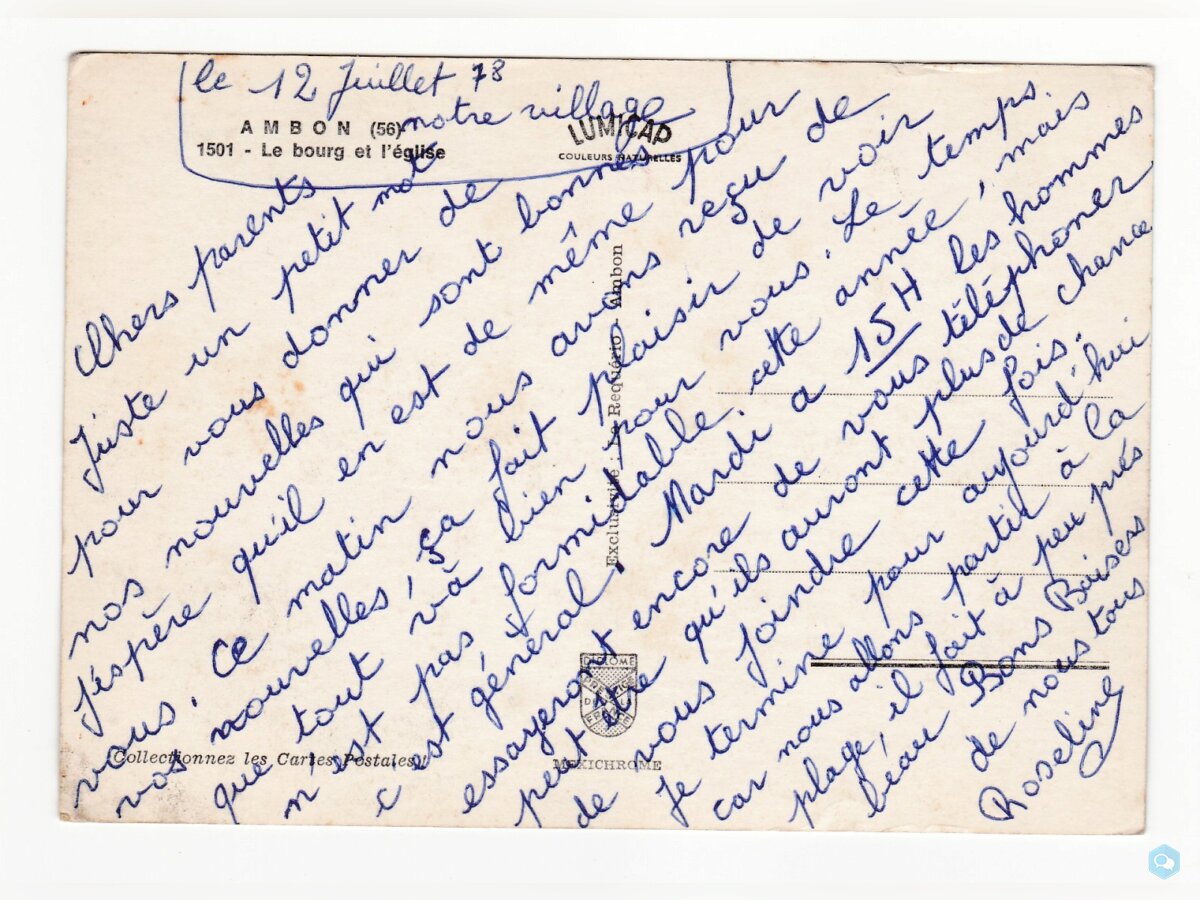 le 12 Juillet 78
notre village
AMBON (56)
1501 - Le bourg et l'église
LUMICAP
COULEURS NATURELLES
Chers parents
Juste un petit mot
pour vous donner de
nos nouvelles qui sont bonnes
J'éspère qu'il en est de même pour
vous. Ce matin nous avons reçu de
vos nouvelles, ça fait plaisir de voir
que tout và bien pour vous. Le temps
n'est pas formidable cette année, mais
c'est général. Mardi a 15H les hommes
essayeront encore de vous téléphoner
peut être qu'ils auront plus de chance
de vous joindre cette fois.
Je termine pour aujourd'hui
car nous allons partir à la
plage, il fait à peu prés
beau Bons Baisers
de nous tous
Roseline
Exclusivité - Le Requério - Ambon
DIPLOME
Collectionnez les Cartes Postales!
MEXICHROME